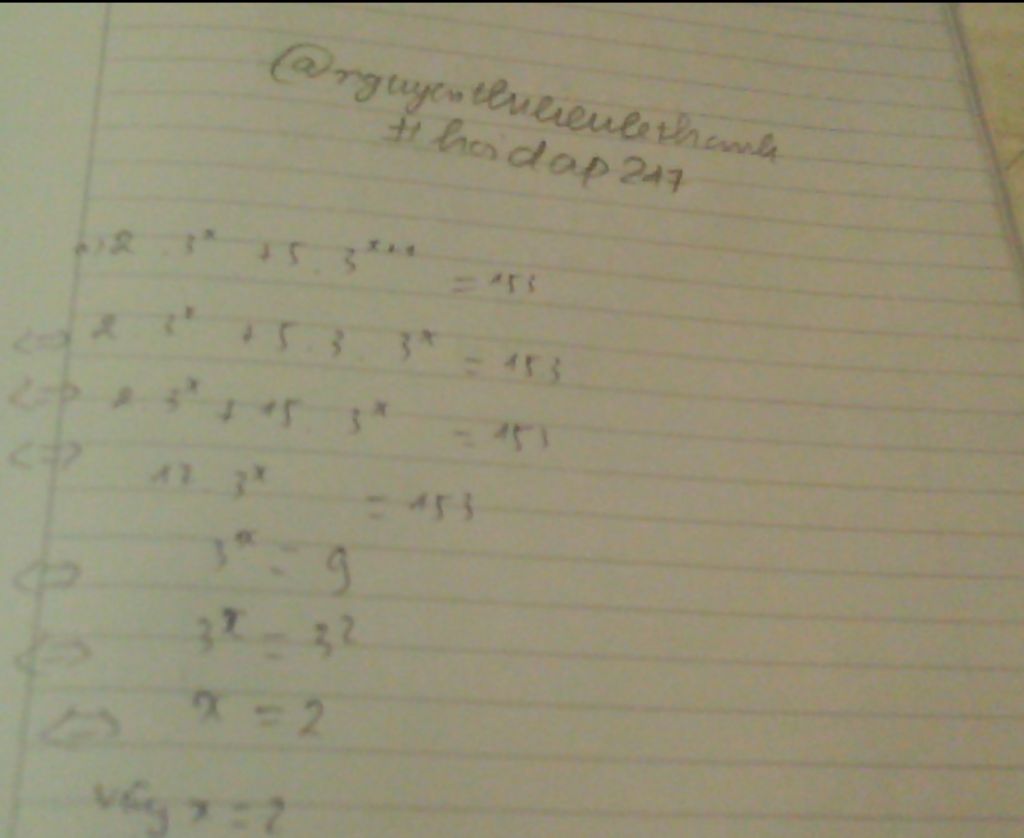 # hoidap247
a) 2 . 3^x + 5 . 3^x+1 = 153
<=> 2 . 3^x + 5 . 3 . 3^x = 153
<=> 2 . 3^x + 15 . 3^x = 153
<=> 17 . 3^x = 153
<=> 3^x = 9
<=> 3^x = 3^2
<=> x = 2
Vậy x = 2